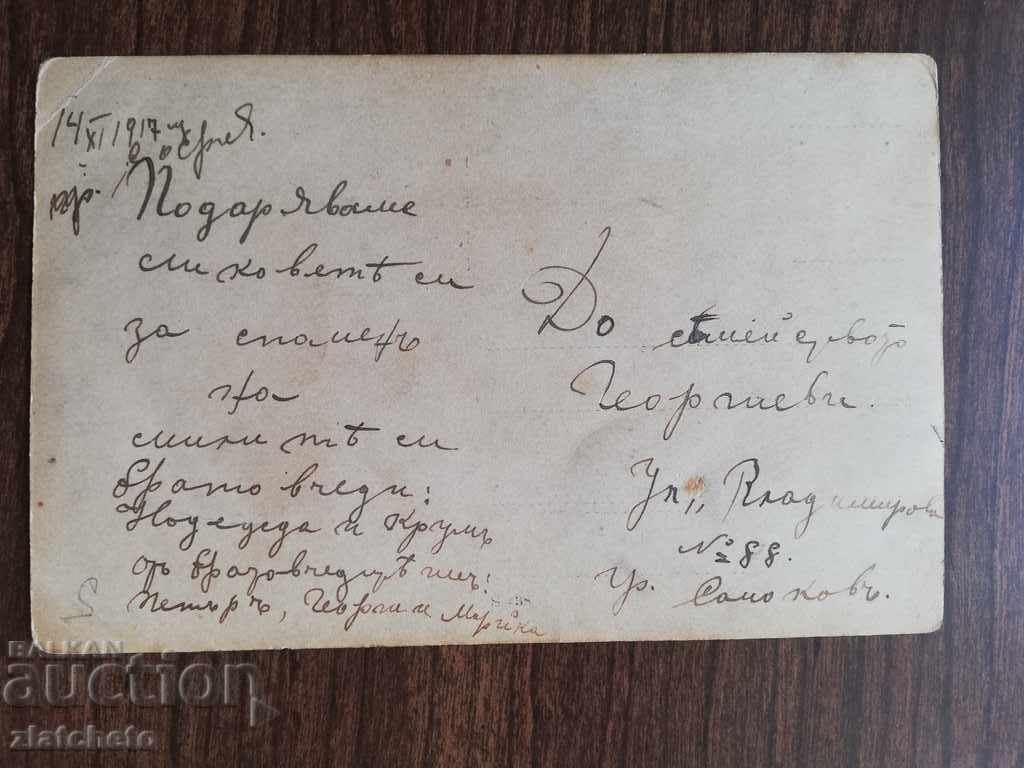 14 XI 1917
гр. София.
Подаряваме
ликоветѣ си
за споменъ
на
милитѣ си
братовчеди:
Надежда и Крумъ
отъ братовчедитѣ имъ:
Петъръ, Георги и Марийка
До семейството
Георгиеви.
Ул. „Владимирова
№ 88.
гр. Самоковъ.
BALKAN
auction
zlatcheto